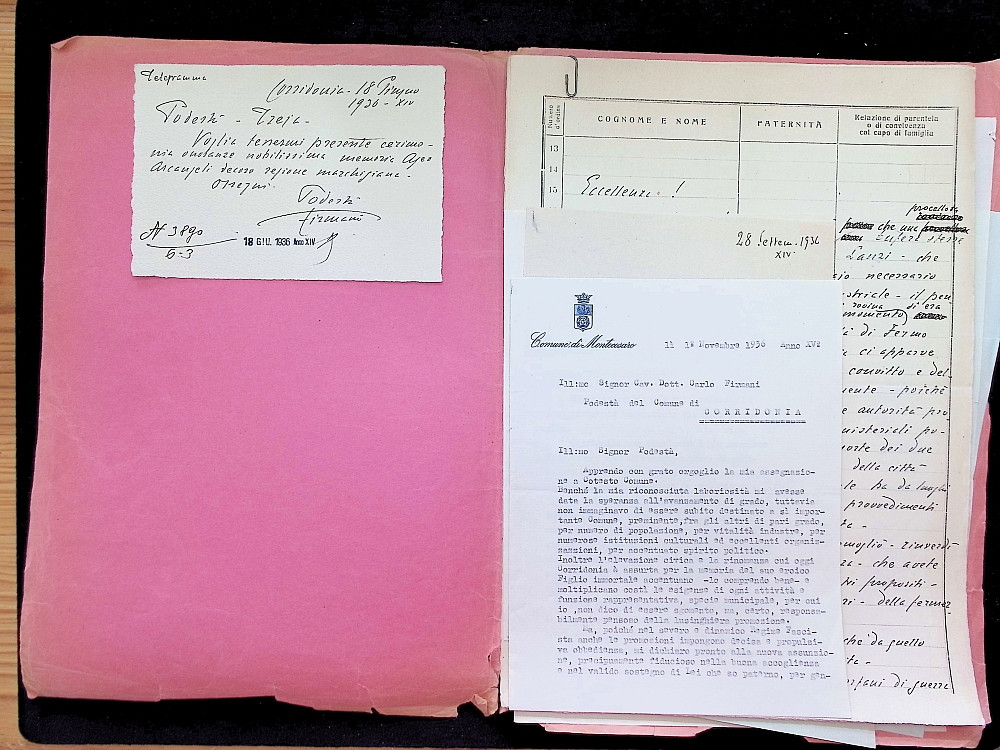 Telegramma
Corridonia - 18 Giugno
1936 - XIV
Podestà - Treja -
Voglia tenermi presente cerimo-
nia onoranze nobilissima memoria
Arcangeli decoro regione marchigiana -
Ossequi -
Podestà
Firmani
N 3890
6-3
18 GIU. 1936 Anno XIV
Numero d'ordine
COGNOME E NOME
PATERNITÀ
Relazione di parentela
o di convivenza
col capo di famiglia
13
14
15
Eccellenza !
28 Settem. 1936
XIV
procellosa
che una
Lanzi - che
necessario
striale - il pen
rovina di era
momento)
di Fermo
ci apparve
convitto e del-
mente - poichè
e autorità pro
nisteriali po-
morte dei due
della città
te ha da lunghi
provvedimenti
che avete
propositi -
della fermez
che da quello
orfani di guerra
Comune di Montecosaro
li 1° Novembre 1936 Anno XV°
Ill:mo Signor Cav. Dott. Carlo Firmani
Podestà del Comune di
CORRIDONIA
Ill:mo Signor Podestà,
Apprendo con grato orgoglio la mia assegnazio-
ne a Cotesto Comune.
Benché la mia riconosciuta laboriosità mi avesse
data la speranza all'avanzamento di grado, tuttavia
non immaginavo di essere subito destinato a sì impor-
tante Comune, preminente,fra gli altri di pari grado,
per numero di popolazione, per vitalità industre, per
numerose istituzioni culturali ed eccellenti organiz-
zazioni, per accentuato spirito politico.
Inoltre l'elevazione civica e la rinomanza cui oggi
Corridonia è assurta per la memoria del suo eroico
Figlio immortale accentuano -lo comprendo bene- e
moltiplicano costì le esigenze di ogni attività e
funzione rappresentativa, specie municipale, per cui
io ,non dico di essere sgomento, ma, certo, responsa-
bilmente pensoso della lusinghiera promozione.
Ma, poiché nel severo e dinamico Regime Fasci-
sta anche le promozioni impongono decisa e propulsi-
va obbedienza, mi dichiaro pronto alla nuova assunzio-
ne, precipuamente fiducioso nella buona accoglienza
e nel valido sostegno di Lei che so paterno, per gen-